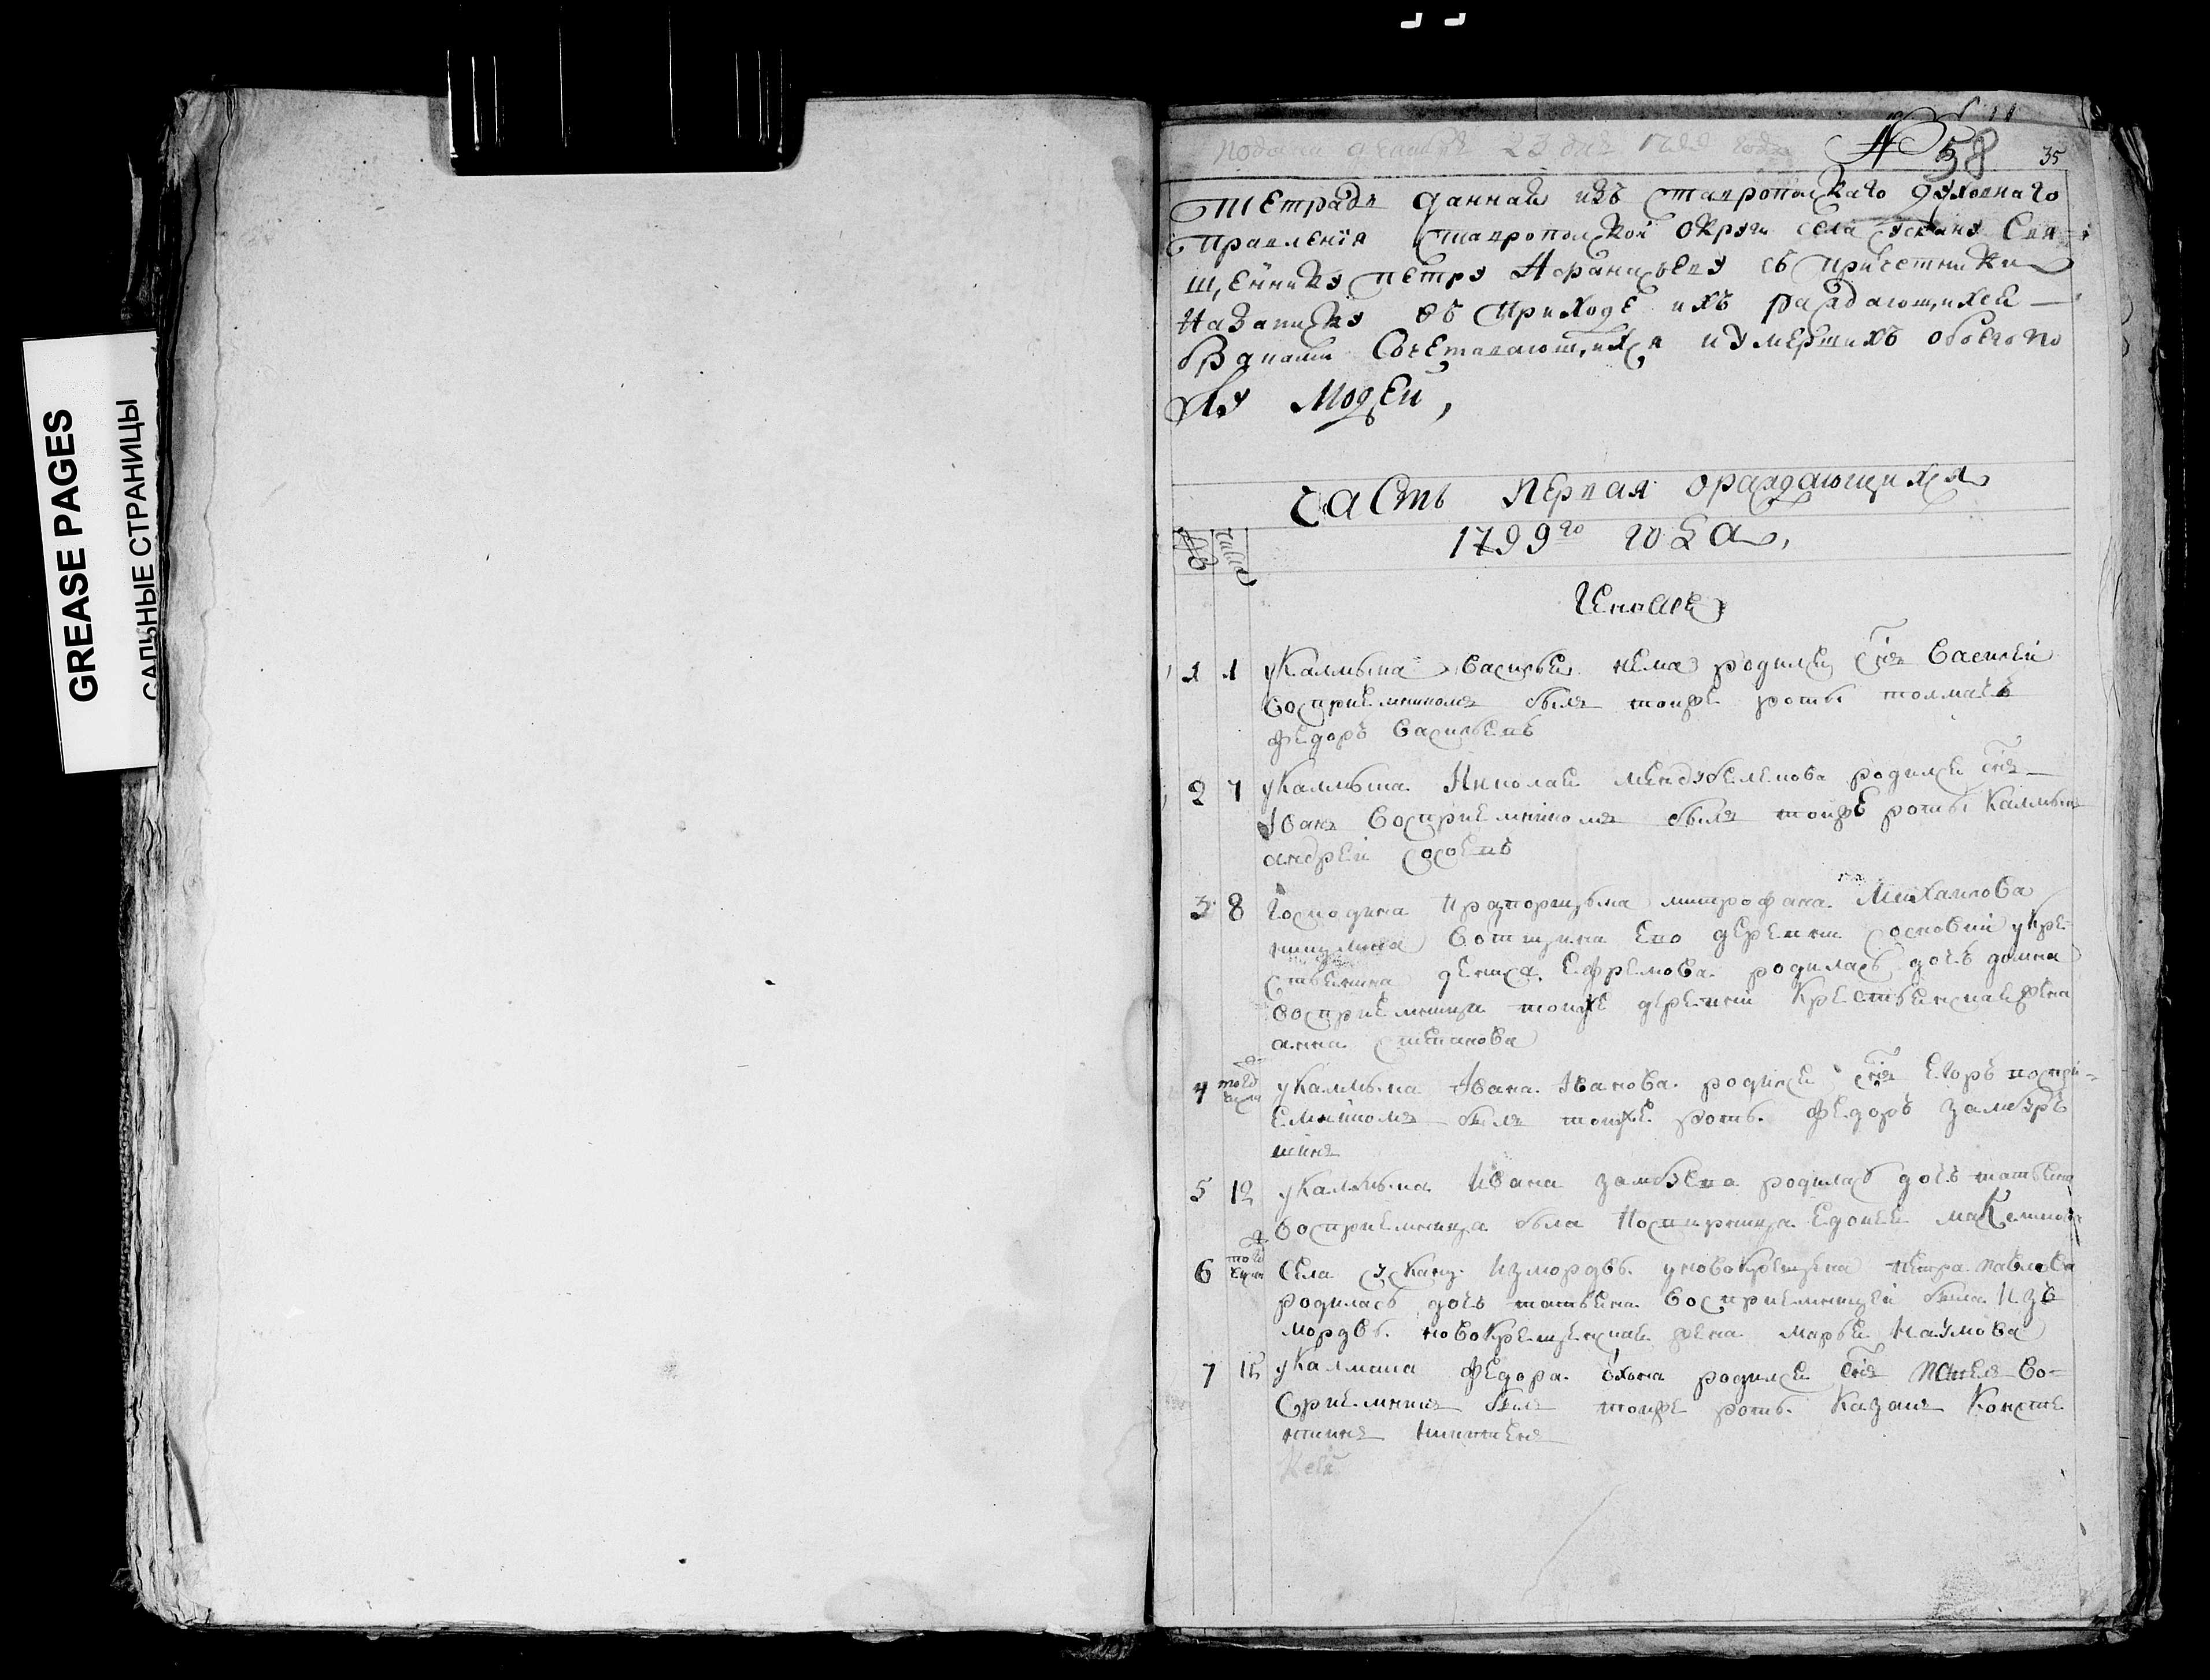 GREASE PAGES
САЛЬНЫЕ СТРАНИЦЫ
23 дня года
№ 58
35
Тетрадь данная изъ Ставропольскаго духовнаго
правленія Ставропольской округи села Ускану Свя-
щеннику Петру Афанасьеву съ причетники
на записку въ приходе ихъ раждающихся
браками Сочетавающихся и умершихъ обоего по
лу людей,
Часть первая ораждающихся
1799го года,
Генваря
1 1 у Калмыка Василья родился снъ Василей
восприемникомъ былъ тоиже роты толмачъ
Федоръ Васильевъ
2 7 у Калмыка Николая родился снъ
Iванъ восприемникомъ былъ тоиже роты Калмык
андрей
3 8 Господина Прапорщыка митрофана Михаилова
вотчина ево деревни Сосновки у кре
стьянина дениса Ефремова родилась дочь домна
восприемница тоиже деревни Крестьянская жена
анна Степанова
4 того числа у Калмыка Iвана Iванова родился снъ Егоръ воспри-
емникомъ былъ тоиже роты Федоръ
5 12 у Калмыка Ивана родилась дочь татьяна
восприемница была
6 того числа Села Ускану Из мордвы у новокрещена Петра Павлова
родилась дочь татьяна восприемницей была Изъ
мордвы новокрещенская жена марья Наумова
7 15 у Калмыка Федора родился снъ Павелъ во-
сприемникъ былъ тоиже роты Казакъ Конста
нтинъ